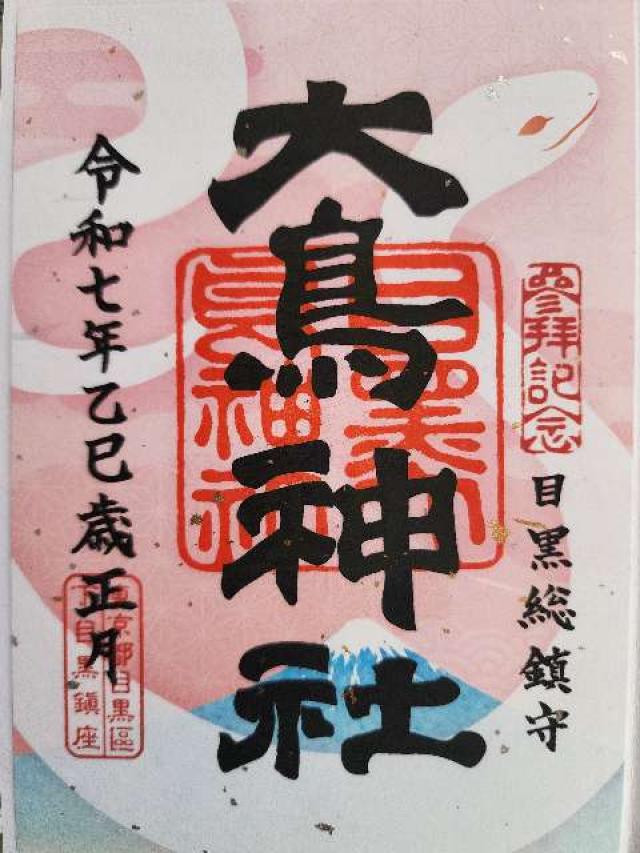 參拜記念
目黒総鎮守
大鳥神社
令和七年乙巳歳正月
東京都目黒區
下目黒鎮座